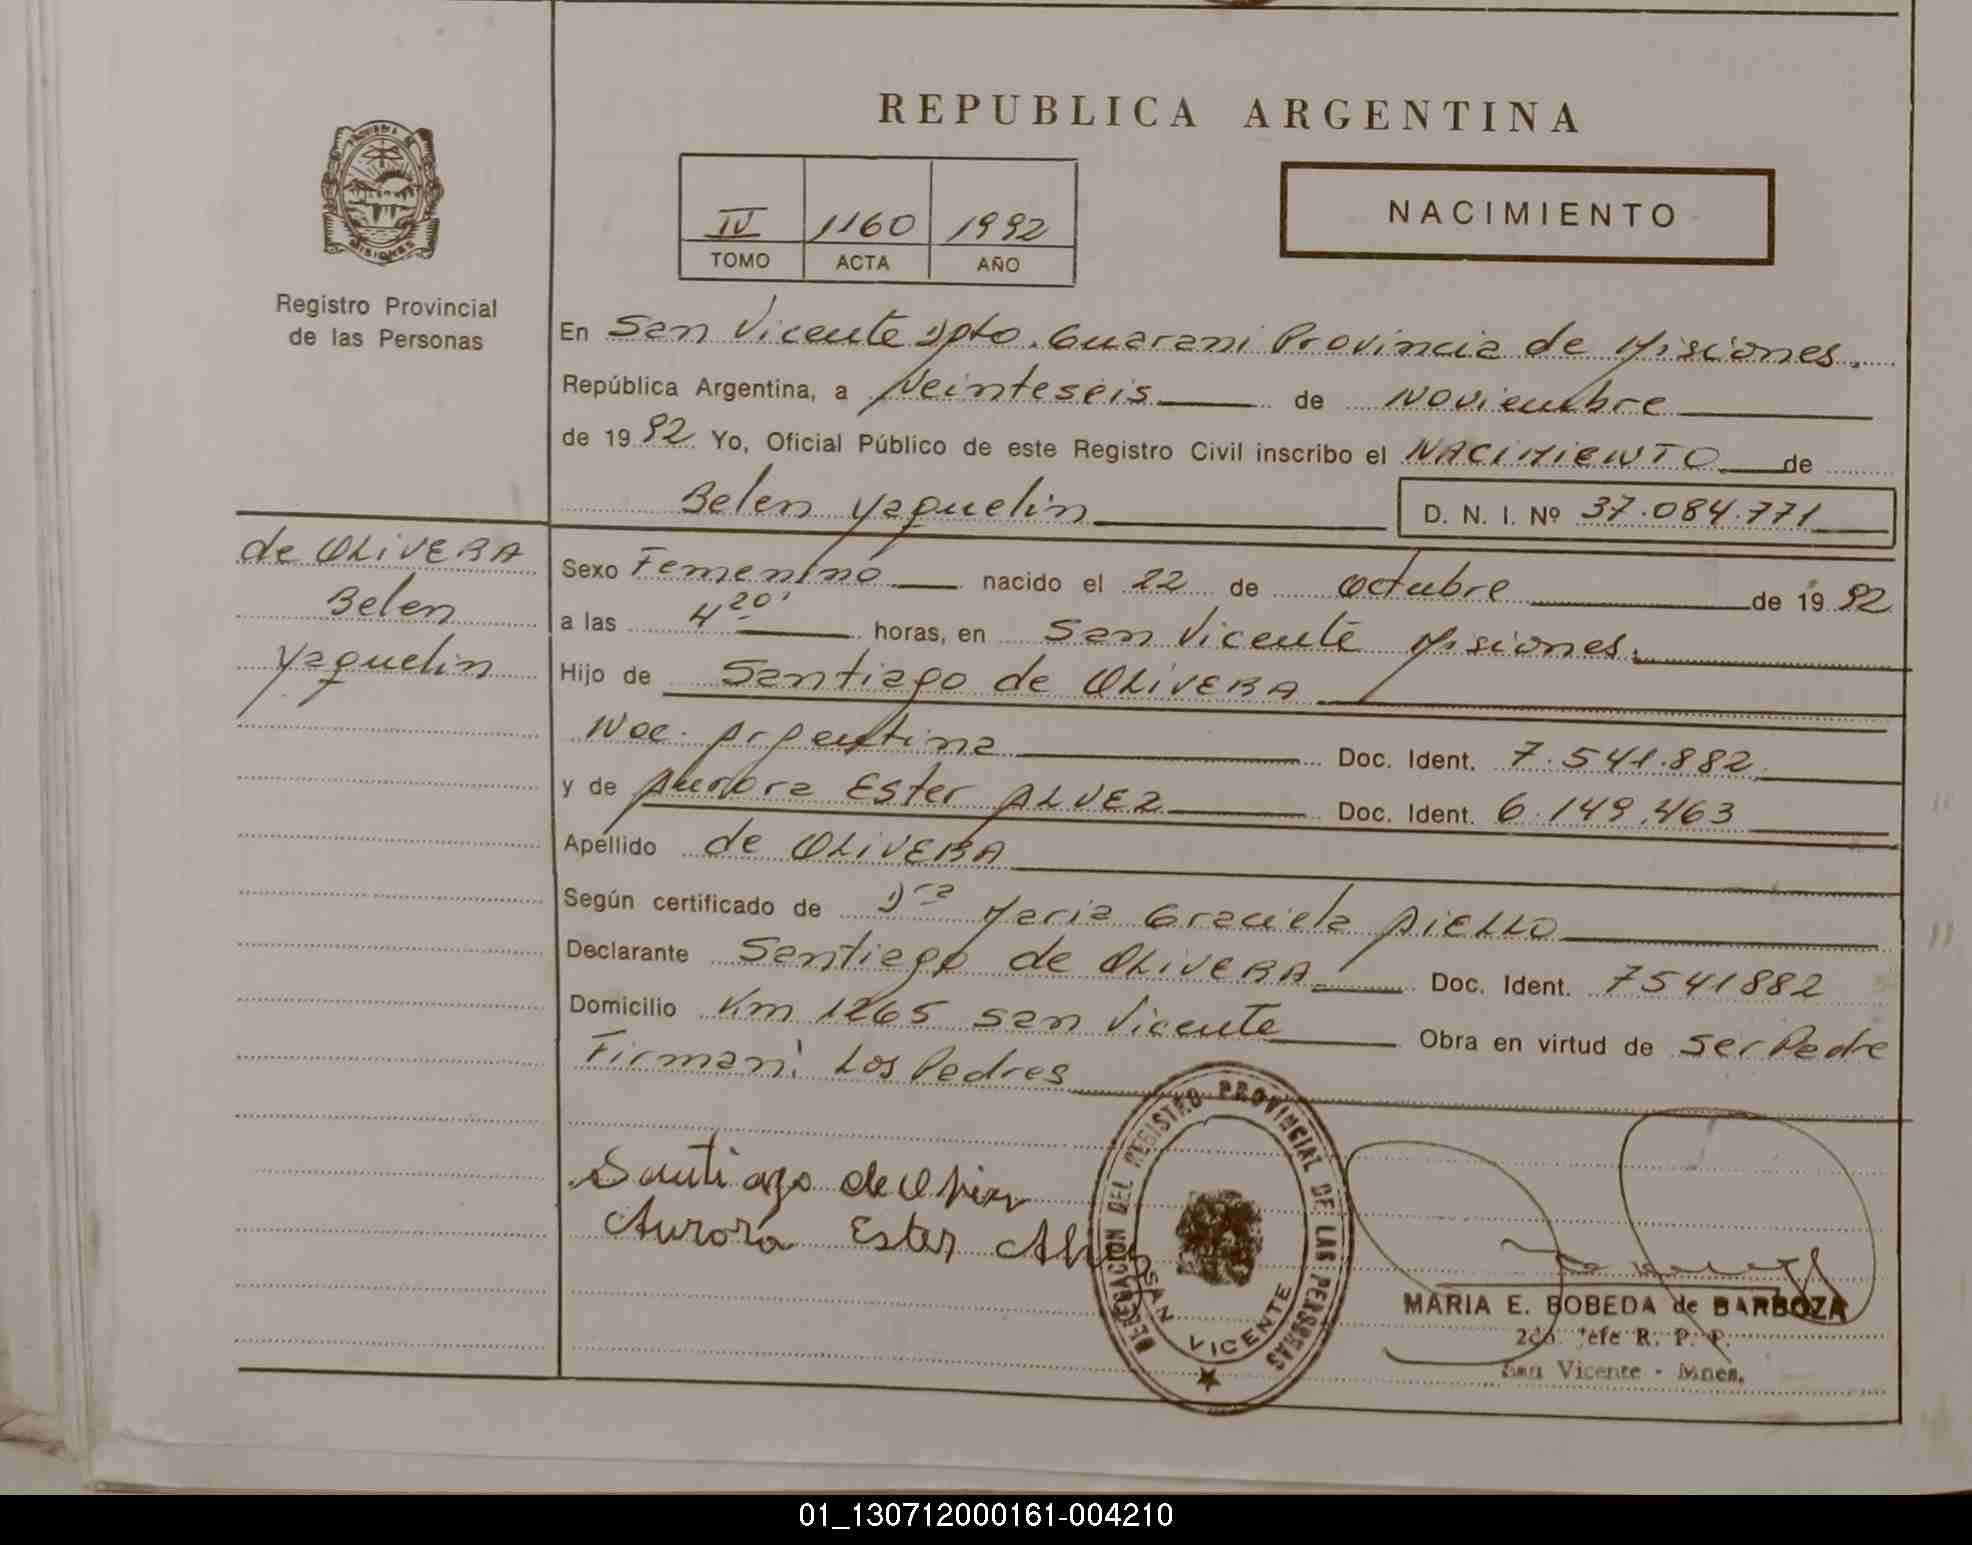 REPUBLICA ARGENTINA
NACIMIENTO
IV 1160 1992
TOMO ACTA AÑO
PROVINCIA DE
MISIONES
Registro Provincial
de las Personas
En San Vicente Dpto. Guarani Provincia de Misiones.
República Argentina, a Veinteseis de Noviembre
de 1992 Yo, Oficial Público de este Registro Civil inscribo el NACIMIENTO de
Belen Yaquelin D. N. I. Nº 37.084.771
de OLIVERA
Belen
Yaquelin
Sexo Femenino nacido el 22 de Octubre de 1992
a las 4 20' horas, en San Vicente Misiones.
Hijo de Santiago de OLIVERA
Nac. Argentina Doc. Ident. 7.541.882
y de Aurora Ester ALVEZ Doc. Ident. 6.149.463
Apellido de OLIVERA
Según certificado de Dra Maria Graciela AIELLO
Declarante Santiago de OLIVERA Doc. Ident. 7541882
Domicilio Km 1265 San Vicente Obra en virtud de Ser Padre
Firman: Los Padres
Santiago de
Aurora Ester
DELEGACION DEL REGISTRO PROVINCIAL DE LAS PERSONAS
SAN VICENTE
MARIA E. BOBEDA de BARBOZA
2do. Jefe R. P. P.
San Vicente - Mnes.
01_130712000161-004210